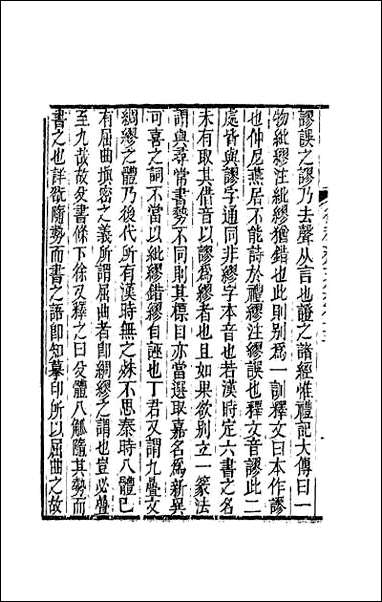 謬誤之謬乃去聲从言也證之諸經惟禮記大傳曰一
物紕繆注紕繆猶錯也此則别為一訓釋文曰本作謬
也仲尼燕居不能詩於禮繆注繆誤也釋文音謬此二
處皆與謬字通同非繆字本音也若漢時定六書之名
未有取其借音以謬為繆者也且如果欲别立一篆法
謂與尋常書勢不同則其標目亦當選取嘉名為新異
可喜之詞不當以紕繆錯繆自誣也丁君又謂九疊文
綢繆之體乃後代所有漢時無之殊不思秦時八體已
有屈曲塡密之義所謂屈曲者即綢繆之謂也豈必疊
至九哉故殳書條下徐又釋之曰殳體八觚隨其勢而
書之也詳欲隨勢而書之語即知摹印所以屈曲之故